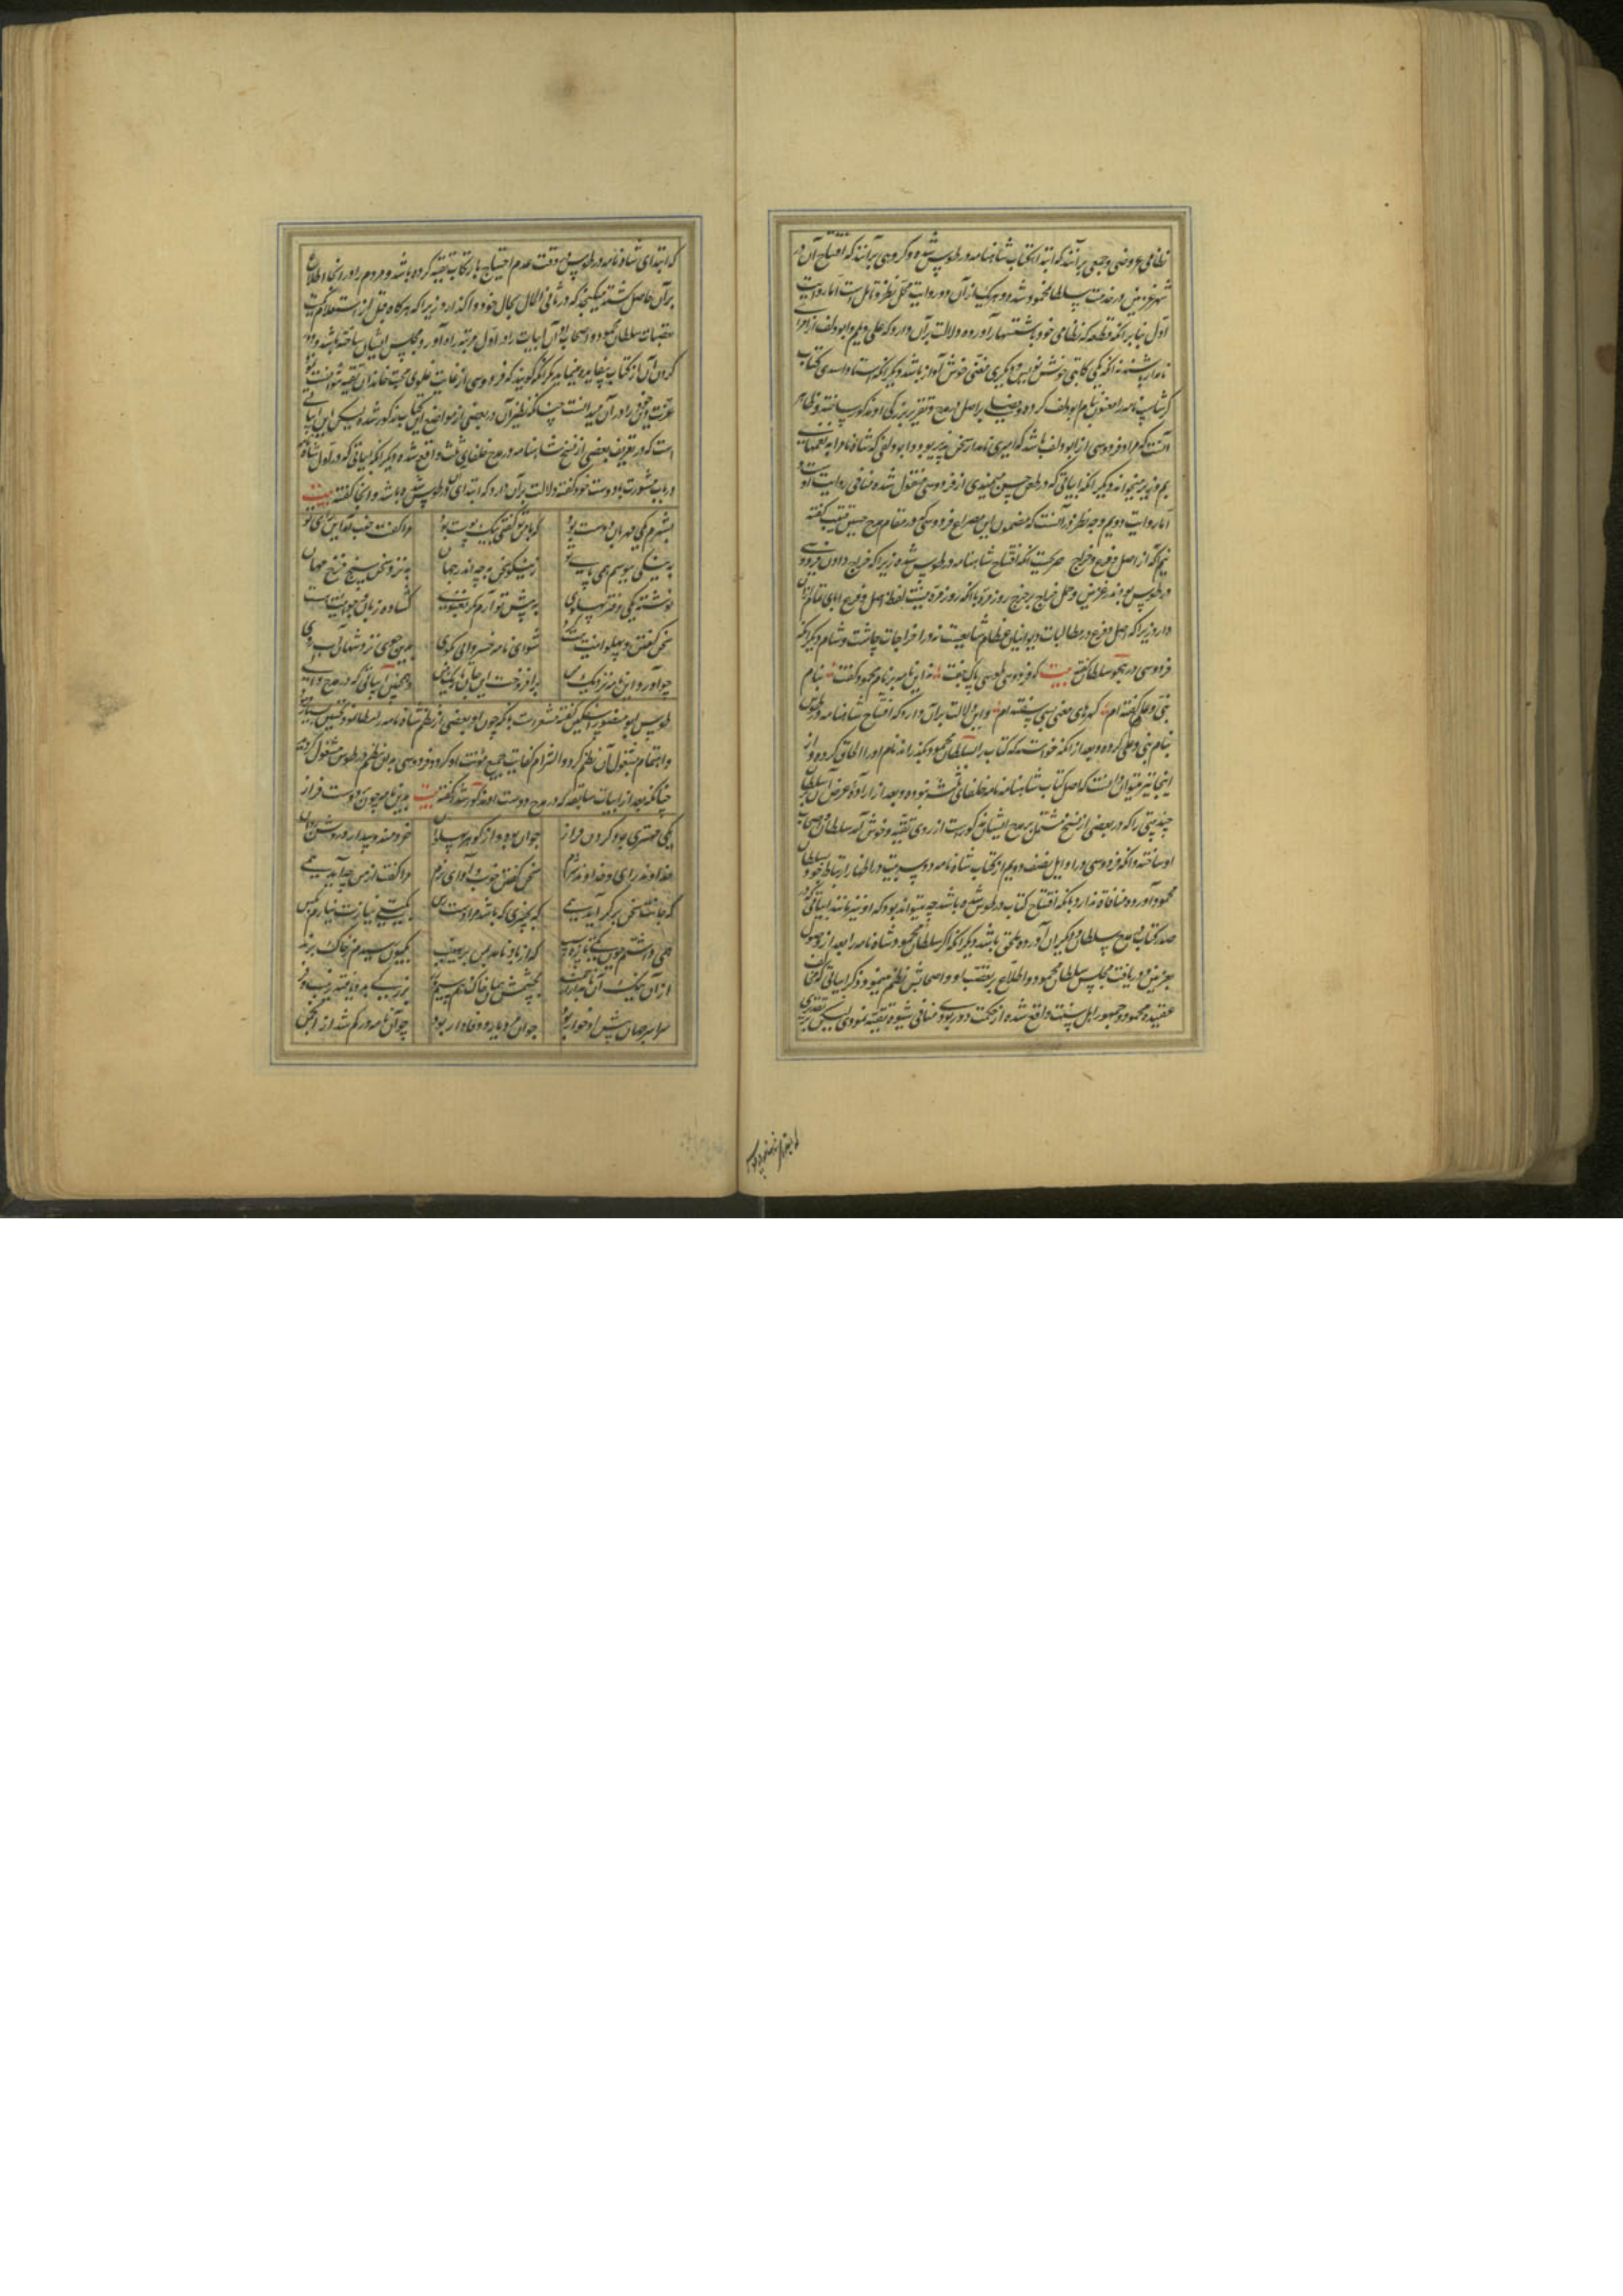 نظامی عروضی و جمعی برآنند که ابتداء کتاب شاهنامه در طوس شده و گروهی برآنند که افتتاح آن در
شهر غزنین در خدمت سلطان محمود شده و هر یک از آن دو روایت محل نظر و تامل است اما روایت
اول بنا بر آنکه قطعه که نظامی خود باستشهاد آورده دلالت بر آن دارد که علی دیلم و ابودلف از امرای
نامدار باشند نه آنکه یکی کاتبی خوش نویس و دیگری مغنی خوش آواز باشد و دیگر آنکه استاد اسدی کتاب
کرشاسب نامه را معنون بنام ابودلف کرده و فصلی در اصل و مدح و تقریر بزرگی او مذکور ساخته و ظاهر
آنست که مراد فردوسی از ابودلف باشد که امیری نامدار سخن پذیر بوده و ابودلفی که شاهنامه را به نغمات
بم و زیر میخواند دیگر آنکه ابیاتی که در طعن حسن میمندی از فردوسی منقول شده منافی روایت اوست
اما روایت دویم وجه نظر در آنست که مضمون این مصراع فردوسی که در مقام مدح حسین قتیب گفته
نیم آگه از اصل و فرع و خراج صریحست آنکه افتتاح شاهنامه در طوس شده زیرا که خراج دادن فردوسی
در طوس بوده نه در غزنین و حمل خراج بر خرج روزمره با آنکه روزمره نیست لفظ اصل و فرع ابای تمام از آن
دارد زیرا که اصل و فرع در مطالبات دیوانیان عظام شایعست نه در اخراجات چاشت و شام دیگر آنکه
فردوسی در هجو سلطان گفته بیت که فردوسی طوسی پاک جفت نه این نامه بر نام محمود گفت بنام
نبی و علی گفته ام گهرهای معنی بسی سفته ام و این دلالت بر آن دارد که افتتاح شاهنامه در طوس
بنام نبی و علی کرده و بعد از آنکه خواسته که کتاب را بسلطان محمود بگذراند نام او را الحاق کرده و از
اینجا نیز میتوان دانست که اصل کتاب شاهنامه نامه خلفای ثلثه نبوده و بعد از اراده عرض آن بر سلطان
چند بیتی را که در بعضی از نسخ مشتمل بر مدح ایشان مذکور است از روی تقیه و خوش آمد سلطان و اصحاب
او ساخته و آنکه فردوسی در اوایل نصف دویم از کتاب شاه نامه دو سه بیت در اظهار ارتباط خود با سلطان
محمود آورده منافاة ندارد با آنکه افتتاح کتاب در طوس شده باشد چه میتواند بود که او نیز مانند ابیاتی که در
صدر کتاب در مدح سلطان و دیگران آورده ملحق باشد دیگر آنکه اگر سلطان محمود شاه نامه را بعد از وصول
بغزنین و دریافت مجلس سلطان محمود و اطلاع بر تعصب او و اصحابش نظم مینمود ذکر ابیاتی که مخالف
عقیده محمود و جمهور اهل سنت واقع شده از حکمت دور بودی و منافی شیوه تقیه نمودی لیکن بر تقدیری
که ابتدای شاه نامه در طوس در وقت عدم احتیاج بارتکاب تقیه کرده باشد و مردم را در آنجا اطلاع
بر آن حاصل گشته میگنجد که در ثانی الحال بحال خود واگذارد زیرا که هرگاه قبل از استعلام کیفیت
تعصبات سلطان محمود و اصحاب او آن ابیات را در اول مرتبه در آورده مجلس ایشان ساخته باشد دور
کردن آن از کتاب بیفایده مینماید مگر آنکه گویند که فردوسی از غایت غلو در محبت خاندان تقیه نتوانست
عزت خود را در آن میدانست چنانکه نظیر آن در بعضی از مواضع این کتاب مذکور شده لیکن این ابیاتی
است که در تعریف بعضی از نسخ شاهنامه در مدح خلفای ثلث واقع شده دیگر آنکه ابیاتی که در اول شاه نامه
در باب مشورت با دوست خود گفته دلالت بر آن دارد که ابتدای آن در طوس شده باشد و آنجا گفته بیت
بشهرم یکی مهربان دوست بود که با من تو گفتی بیک پوست بود مرا گفت خوب آمد این رای تو
به نیکی خرامد همی پای تو
نوشته یکی دفتر پهلوی به پیش تو آرم مگر نغنوی گشاده زبان و جوانیت هست
سخن گفتن پهلوانیت هست شو این نامه خسروی باز گوی بدین جوی نزد مهان آبروی
چو آورد این نامه نزدیک من برافروخت این جان تاریک من و همچنین ابیاتی که در مدح والی
طوس ابو منصور گفته مشعر است بآنکه چون او بعضی از نظم شاه نامه را مطالعه و تحسین بسیار نمود
و اهتمام بشغل آن نظم کرد و التزام کفایت جمیع مؤنت او کرد و فردوسی بدان نظم در طوس مشغول گردید
چنانکه بعد از ابیات سابقه که در مدح دوست او مذکور شد گفته بیت بدین نامه چون دست بردم فراز
یکی مهتری بود گردن فراز جوان بود و از گوهر پهلوان خردمند و بیدار و روشن روان
خداوند رای و خداوند شرم سخن گفتن خوب و آوای نرم مرا گفت کز من چه آید همی
که جانت سخن برگراید همی به چیزی که باشد مرا دسترس بگیتی نیازت نیارم بکس
همی داشتم چون یکی تازه سیب که از باد نامد بمن بر نهیب بکیوان رسیدم ز خاک نژند
از آن نیک دل نامدار ارجمند بچشمش همان خاک و هم سیم و زر بزرگی بدو یافته زیب و فر
سراسر جهان پیش او خوار بود جوانمرد بود و وفادار بود چو آن نامور کم شد از انجمن